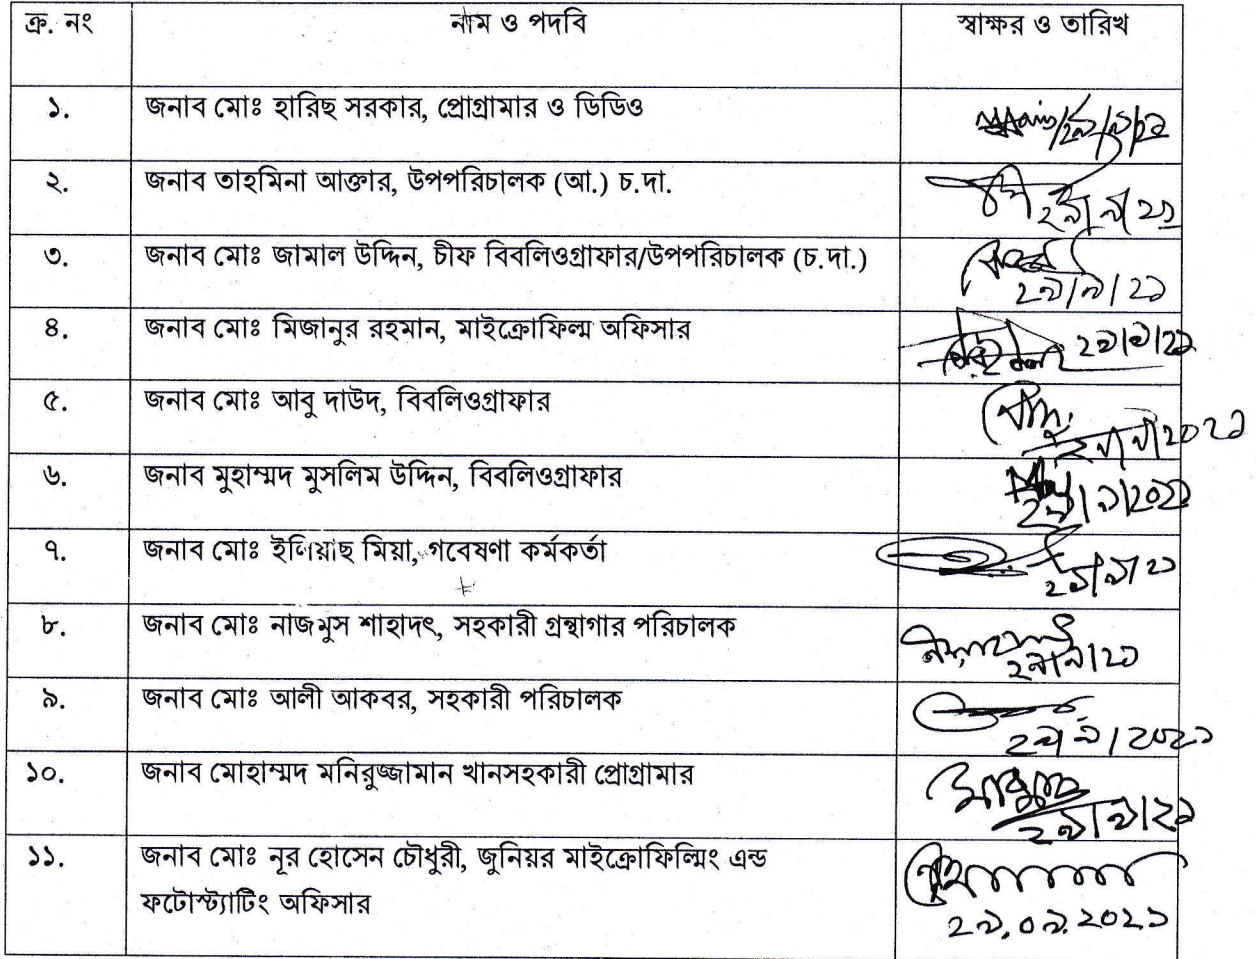 ক্র. নং নাম ও পদবি স্বাক্ষর ও তারিখ
১. জনাব মোঃ হারিছ সরকার, প্রোগ্রামার ও ডিডিও ২৯/৯/২১
২. জনাব তাহমিনা আক্তার, উপপরিচালক (আ.) চ.দা. ২৯/৯/২১
৩. জনাব মোঃ জামাল উদ্দিন, চীফ বিবলিওগ্রাফার/উপপরিচালক (চ.দা.) ২৯/৯/২১
৪. জনাব মোঃ মিজানুর রহমান, মাইক্রোফিল্ম অফিসার ২৯/৯/২১
৫. জনাব মোঃ আবু দাউদ, বিবলিওগ্রাফার ২৯/৯/২০২১
৬. জনাব মুহাম্মদ মুসলিম উদ্দিন, বিবলিওগ্রাফার ২৯/৯/২০২১
৭. জনাব মোঃ ইলিয়াছ মিয়া, গবেষণা কর্মকর্তা ২৯/৯/২১
৮. জনাব মোঃ নাজমুস শাহাদৎ, সহকারী গ্রন্থাগার পরিচালক ২৯/৯/২১
৯. জনাব মোঃ আলী আকবর, সহকারী পরিচালক ২৯/৯/২০২১
১০. জনাব মোহাম্মদ মনিরুজ্জামান খানসহকারী প্রোগ্রামার ২৯/৯/২১
১১. জনাব মোঃ নূর হোসেন চৌধুরী, জুনিয়র মাইক্রোফিল্মিং এন্ড
ফটোস্ট্যাটিং অফিসার ২৯.০৯.২০২১